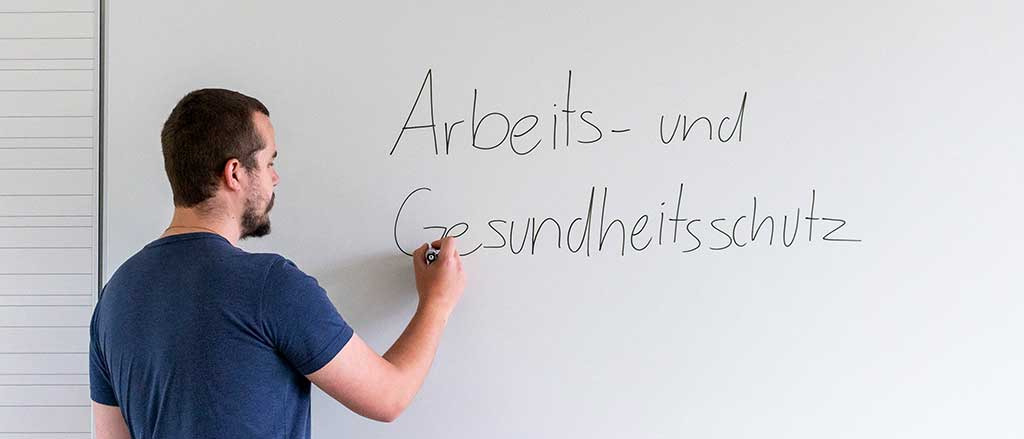 Arbeits- und
Gesundheitsschutz